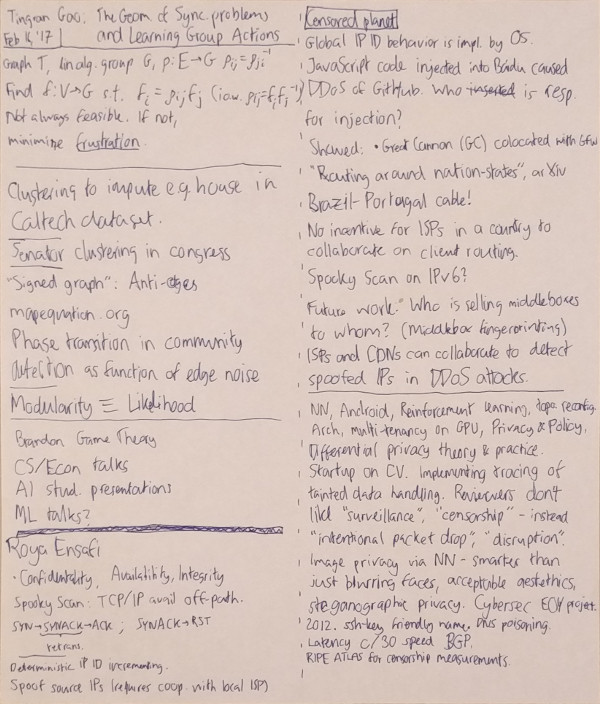 Tingran Gao: The Geom of Sync. problems
Feb 16, '17 and Learning Group Actions
Graph Γ, lin alg. group G, ρ: E→G ρij = ρji⁻¹
Find f: V→G s.t. fi = ρij fj (i.o.w. ρij = fi fj⁻¹)
Not always feasible. If not,
minimize frustration.
Clustering to impute e.g. house in
Caltech dataset.
Senator clustering in congress
"Signed graph": Anti-edges
mapequation.org
Phase transition in community
detection as function of edge noise
Modularity ≡ Likelihood
Brandon Game Theory
CS/Econ talks
AI stud. presentations
ML talks?
Roya Ensafi
· Confidentality, Availability, Integrity
Spooky Scan: TCP/IP avail off-path.
SYN→SYNACK→ACK ; SYNACK→RST
retrans.
Deterministic IP ID incrementing.
Spoof source IPs (requires coop. with local ISP)
Censored planet
Global IP ID behavior is impl. by OS.
JavaScript code injected into Baidu caused
DDoS of GitHub. Who inserted is resp.
for injection?
Showed: · Great Cannon (GC) colocated with GFW
"Routing around nation-states", arXiv
Brazil-Portugal cable!
No incentive for ISPs in a country to
collaborate on client routing.
Spooky Scan on IPv6?
Future work: Who is selling middleboxes
to whom? (Middlebox fingerprinting)
ISPs and CDNs can collaborate to detect
spoofed IPs in DDoS attacks.
NN, Android, Reinforcement learning, topo reconfig.
Arch, multi-tenancy on GPU, Privacy & Policy,
Differential privacy theory & practice.
Startup on CV. Implementing tracing of
tainted data handling. Reviewers don't
like "surveillance", "censorship" - instead
"intentional packet drop", "disruption".
Image privacy via NN - smarter than
just blurring faces, acceptable aestethics,
steganographic privacy. Cybersec ECH project.
2012. ssh-key friendly name. DNS poisoning.
Latency c/30 speed BGP.
RIPE ATLAS for censorship measurements.